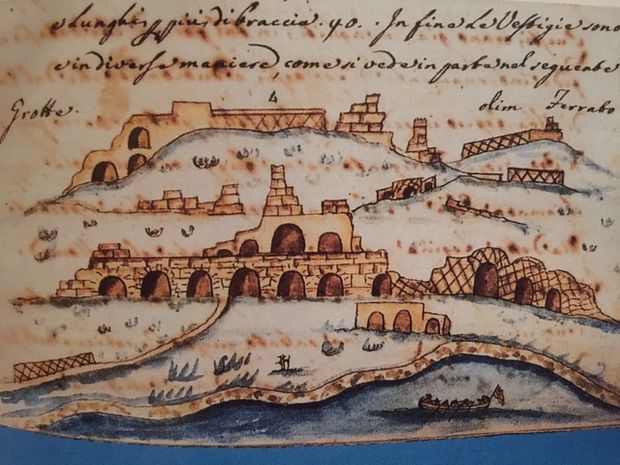 e Lunghi più di braccia 40. In fine Le Vestigie sono
e in diverse maniere, come si vede in parte nel seguente
Grotte. 4 olim Ferrabo